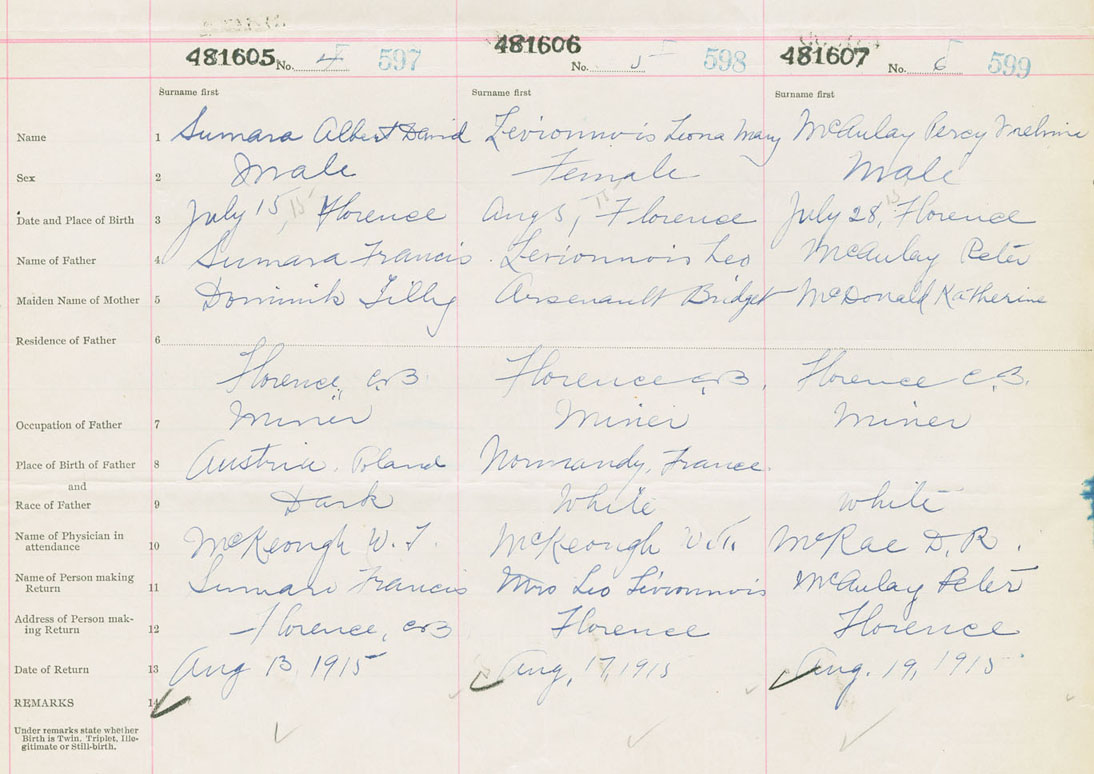 481605 No. 4 597 481606 No. 5 598 481607 No. 6 599
Surname first Surname first Surname first
Name 1 Sumara Albert David Levionnois Leona Mary McAulay Percy
Sex 2 Male Female Male
Date and Place of Birth 3 July 15, 15 Florence Aug 5, 15 Florence July 28, 15 Florence
Name of Father 4 Sumara Francis Levionnois Leo McAulay Peter
Maiden Name of Mother 5 Dominik Tilly Arsenault Bridget McDonald Katherine
Residence of Father 6
Florence, C.B. Florence C.B. Florence C.B.
Occupation of Father 7 Miner Miner Miner
Place of Birth of Father 8 Austria. Poland Normandy, France.
and
Race of Father 9 Dark White White
Name of Physician in attendance 10 McKeough W. J. McKeough W. J. McRae D. R.
Name of Person making Return 11 Sumara Francis Mrs Leo Levionnois McAulay Peter
Address of Person making Return 12 Florence, C.B. Florence Florence
Date of Return 13 Aug 13, 1915 Aug, 17, 1915 Aug. 19, 1915
REMARKS 14
Under remarks state whether
Birth is Twin, Triplet, Ille-
gitimate or Still-birth.